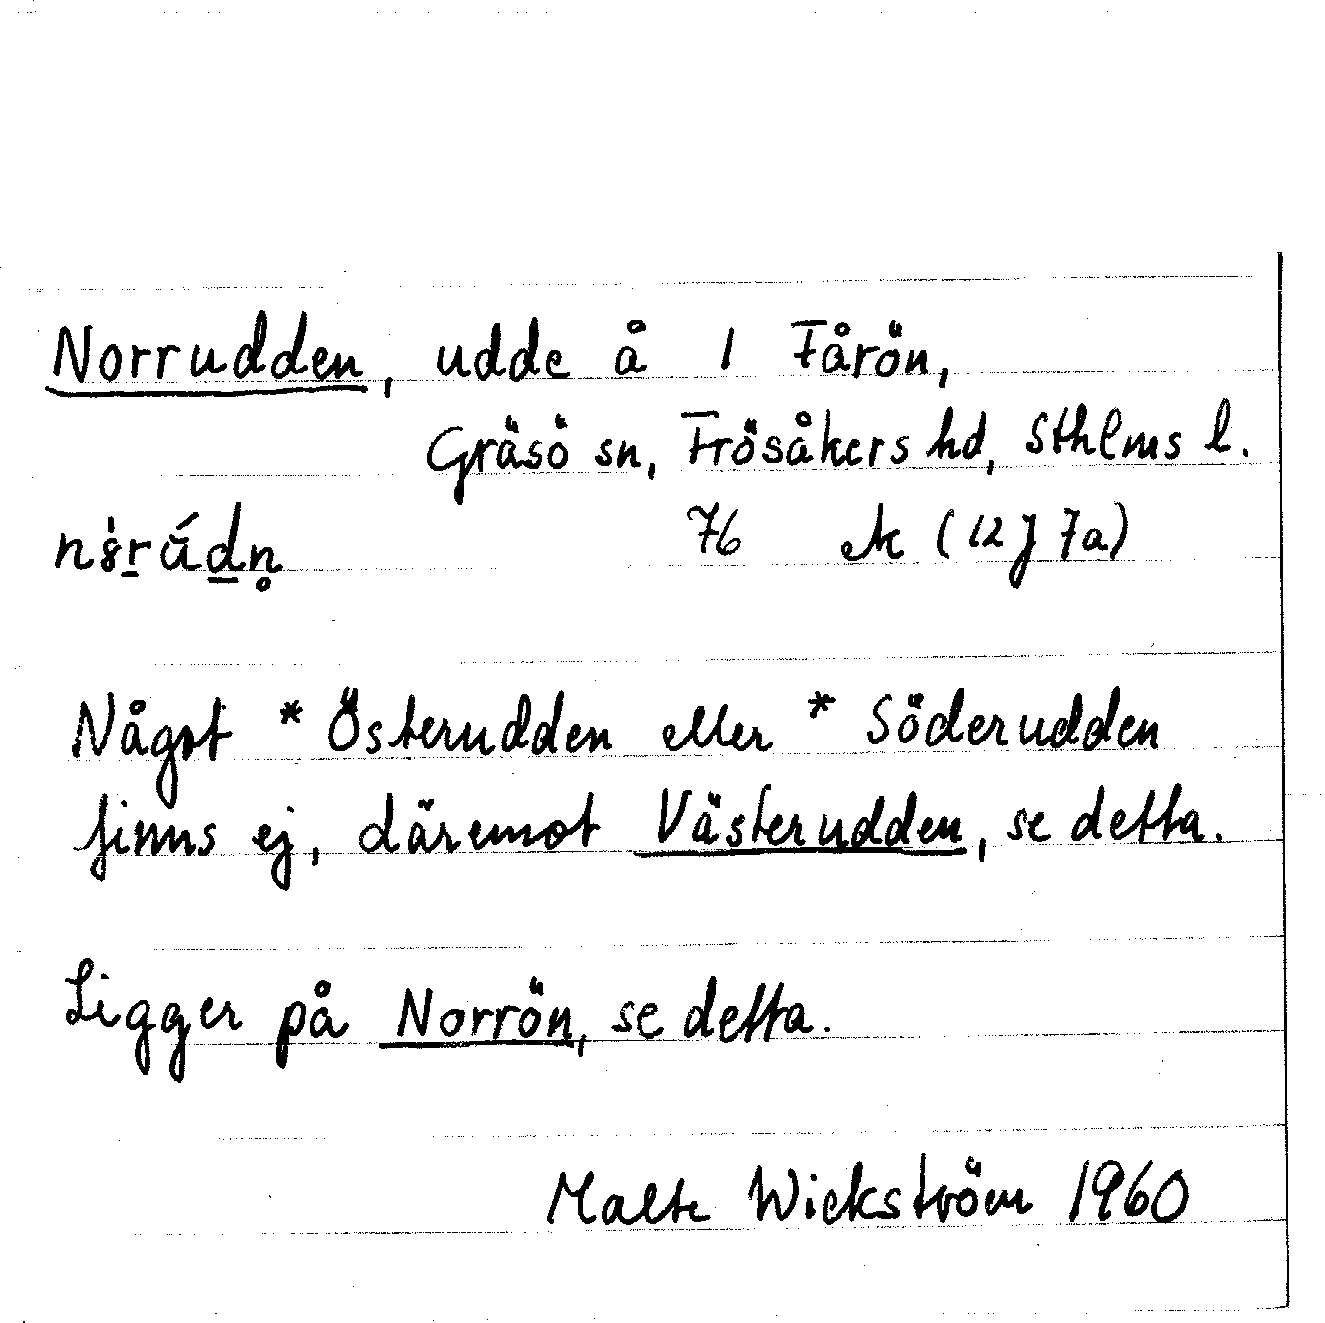 Norrudden, udde å 1 Fårön,
Gräsö sn, Frösåkers hd, Sthlms l.
76 ek (12 J 7a)
Något *Österudden eller *Söderudden
finns ej, däremot Västerudden, se detta.
Ligger på Norrön, se detta.
Malte Wickström 1960